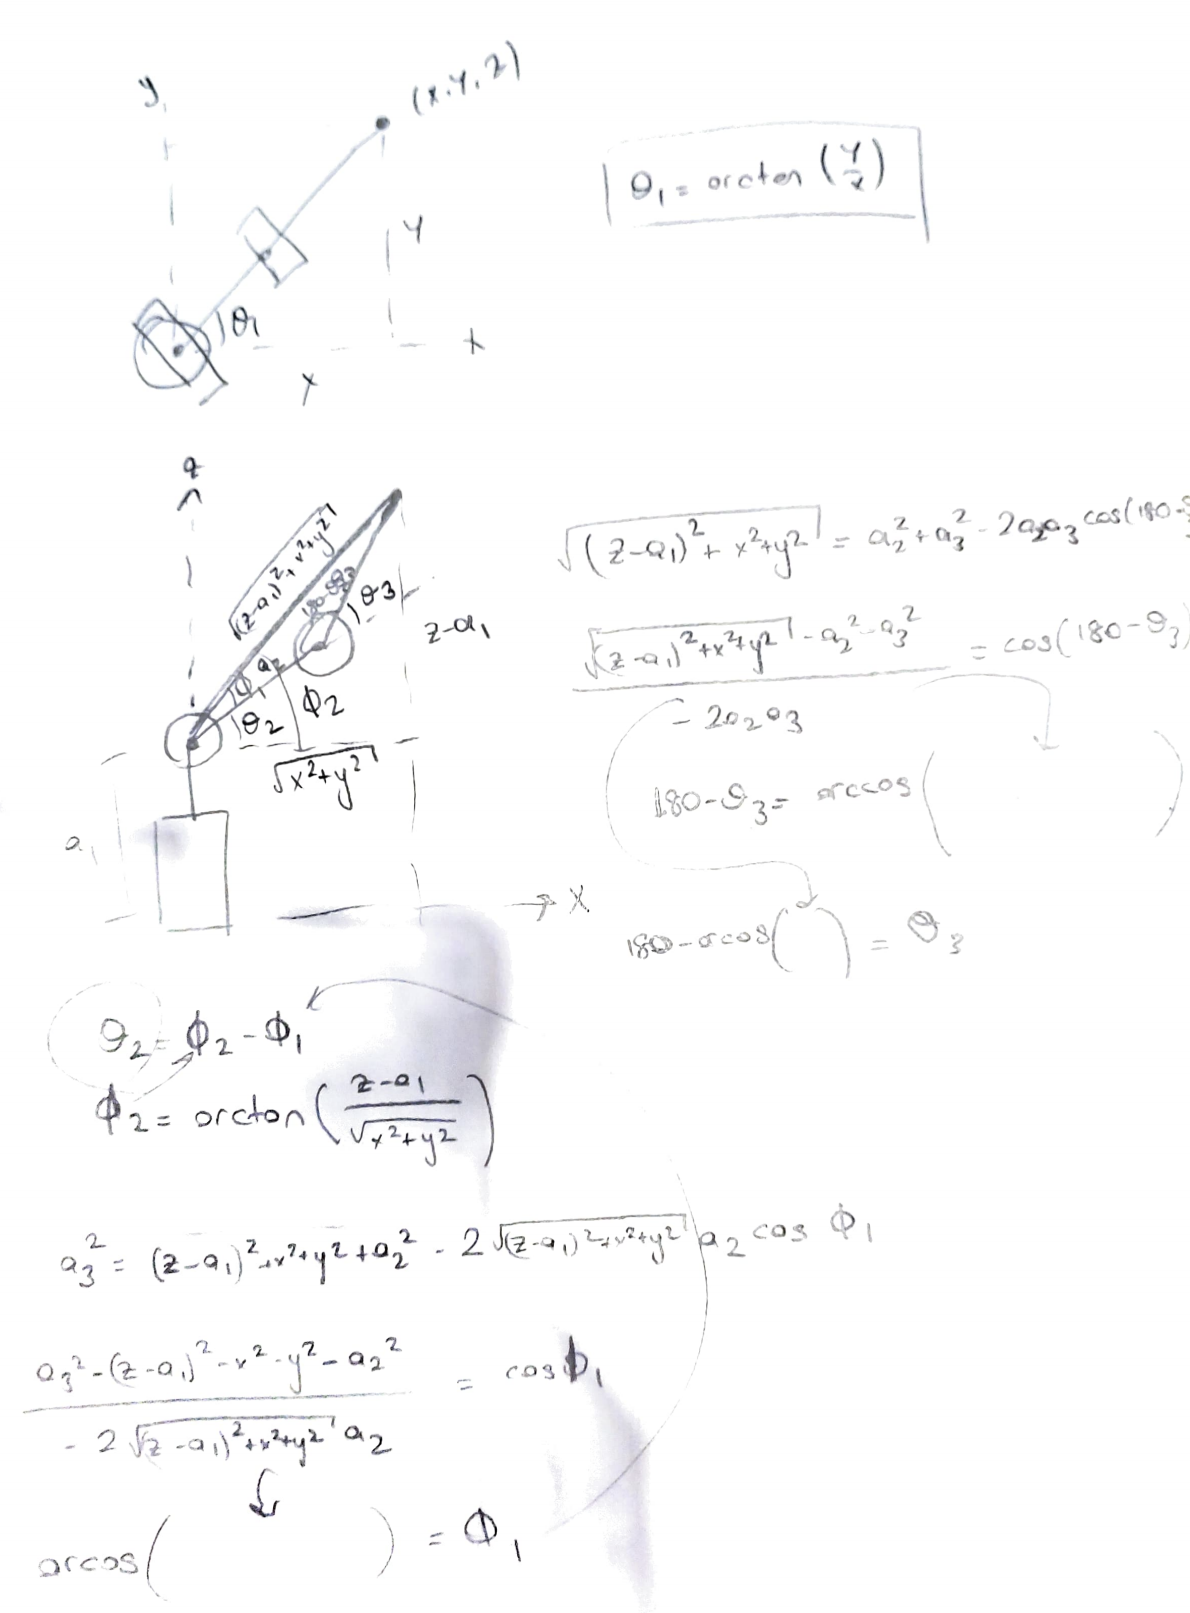 y
(x,y,z)
θ₁ = arcton (y/x)
y
θ₁
x
x
z
√((z-a₁)²+x²+y²)
180-θ₃
θ3
z-a₁
a₂
ϕ₁
θ₂
ϕ2
√(x²+y²)
a₁
→ x
√((z-a₁)²+x²+y²) = a₂²+a₃²-2a₂a₃ cos(180-
(√((z-a₁)²+x²+y²) - a₂²-a₃²) / (-2a₂a₃) = cos(180-θ₃)
180-θ₃ = arccos ( )
180-arcos( ) = θ₃
θ₂ = ϕ₂-ϕ₁
ϕ₂ = arcton ((z-a₁)/√(x²+y²))
a₃² = (z-a₁)²+x²+y²+a₂² - 2√((z-a₁)²+x²+y²) a₂ cos ϕ₁
(a₃²-(z-a₁)²-x²-y²-a₂²) / (-2√((z-a₁)²+x²+y²) a₂) = cosϕ₁
arcos( ) = ϕ₁